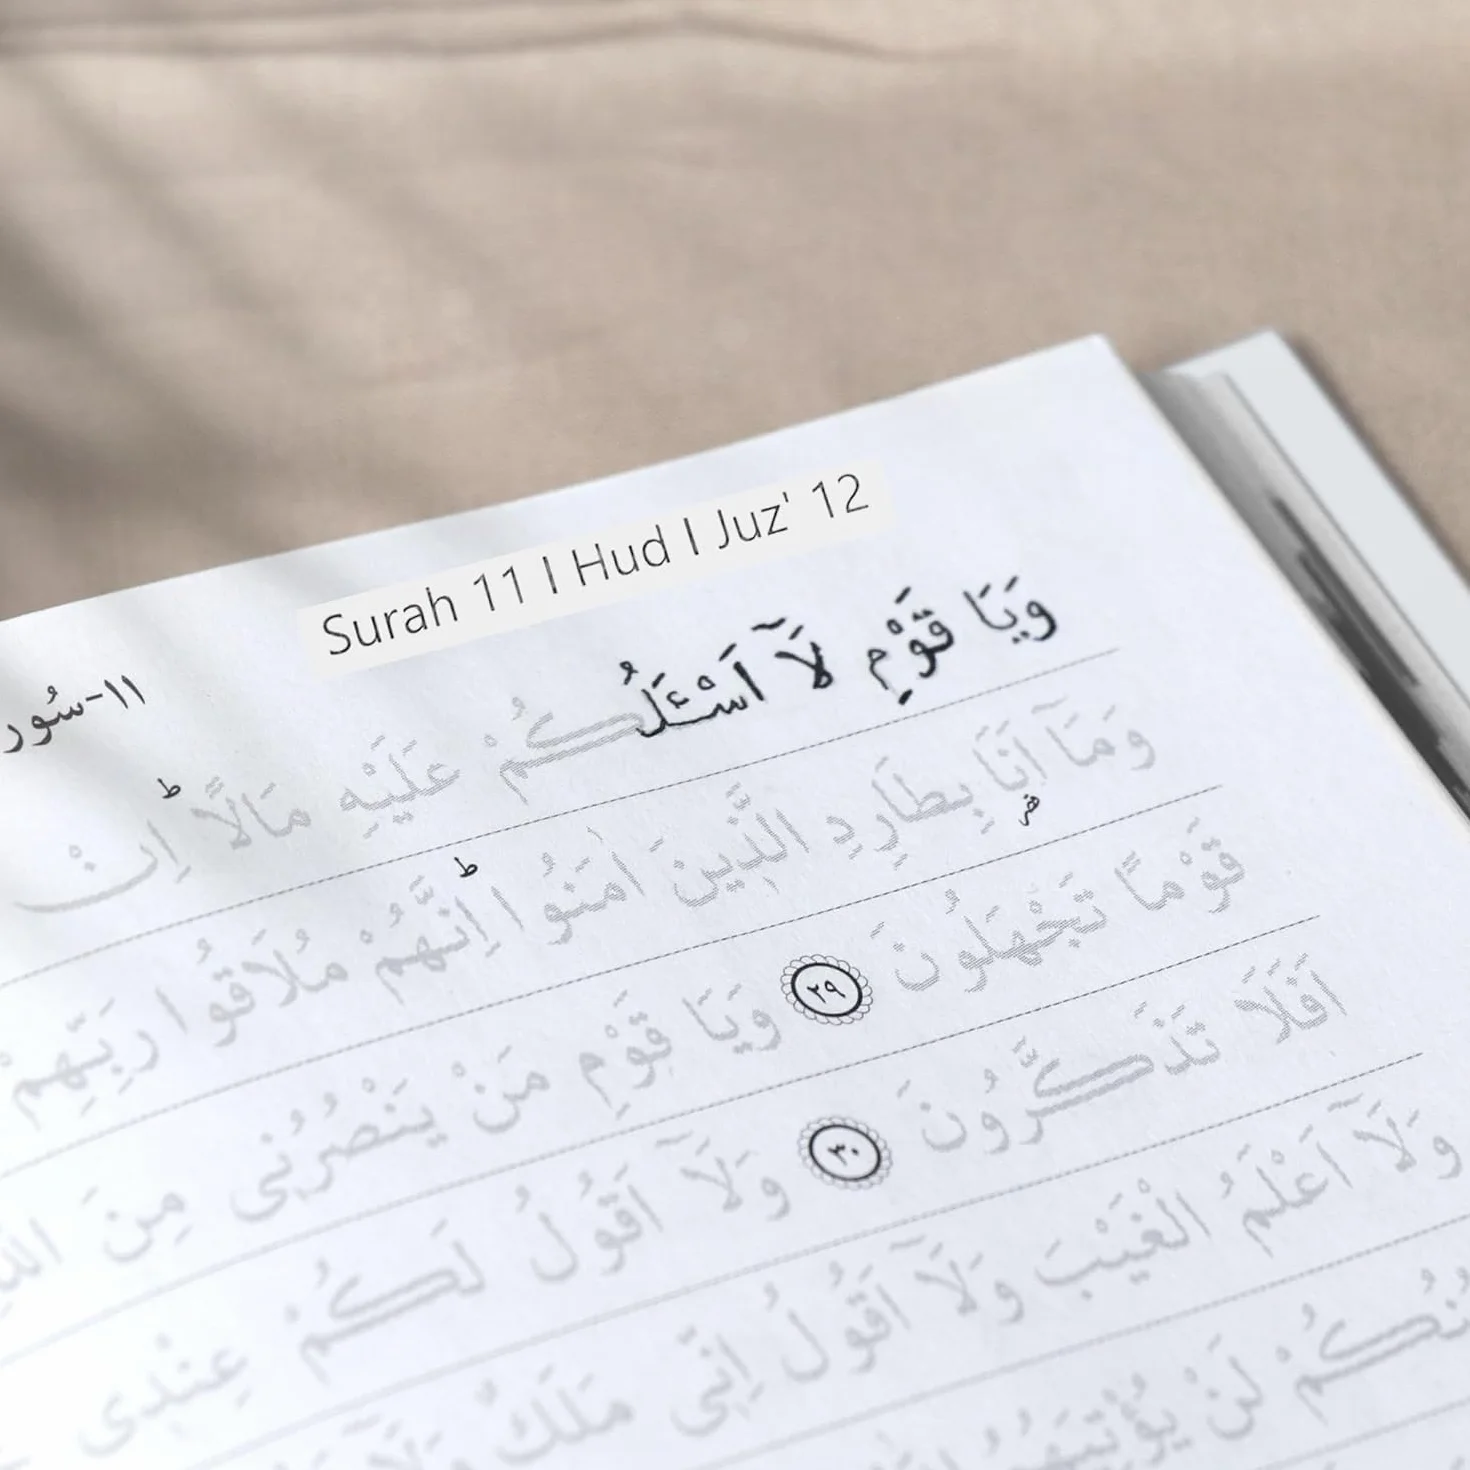 Surah 11 I Hud I Juz' 12
١١-سُور
وَيَا قَوْمِ لَآ اَسْـَٔلُكُمْ عَلَيْهِ مَالًا ط اِنْ
وَمَآ اَنَا بِطَارِدِ الَّذٖينَ اٰمَنُوا ط اِنَّهُمْ مُلَاقُوا رَبِّهِمْ
قَوْمًا تَجْهَلُونَ ٢٩ وَيَا قَوْمِ مَنْ يَنْصُرُنٖى مِنَ
اَفَلَا تَذَكَّرُونَ ٣٠ وَلَآ اَقُولُ لَكُمْ عِنْدٖى
وَلَآ اَعْلَمُ الْغَيْبَ وَلَآ اَقُولُ اِنّٖى مَلَكٌ
لَنْ